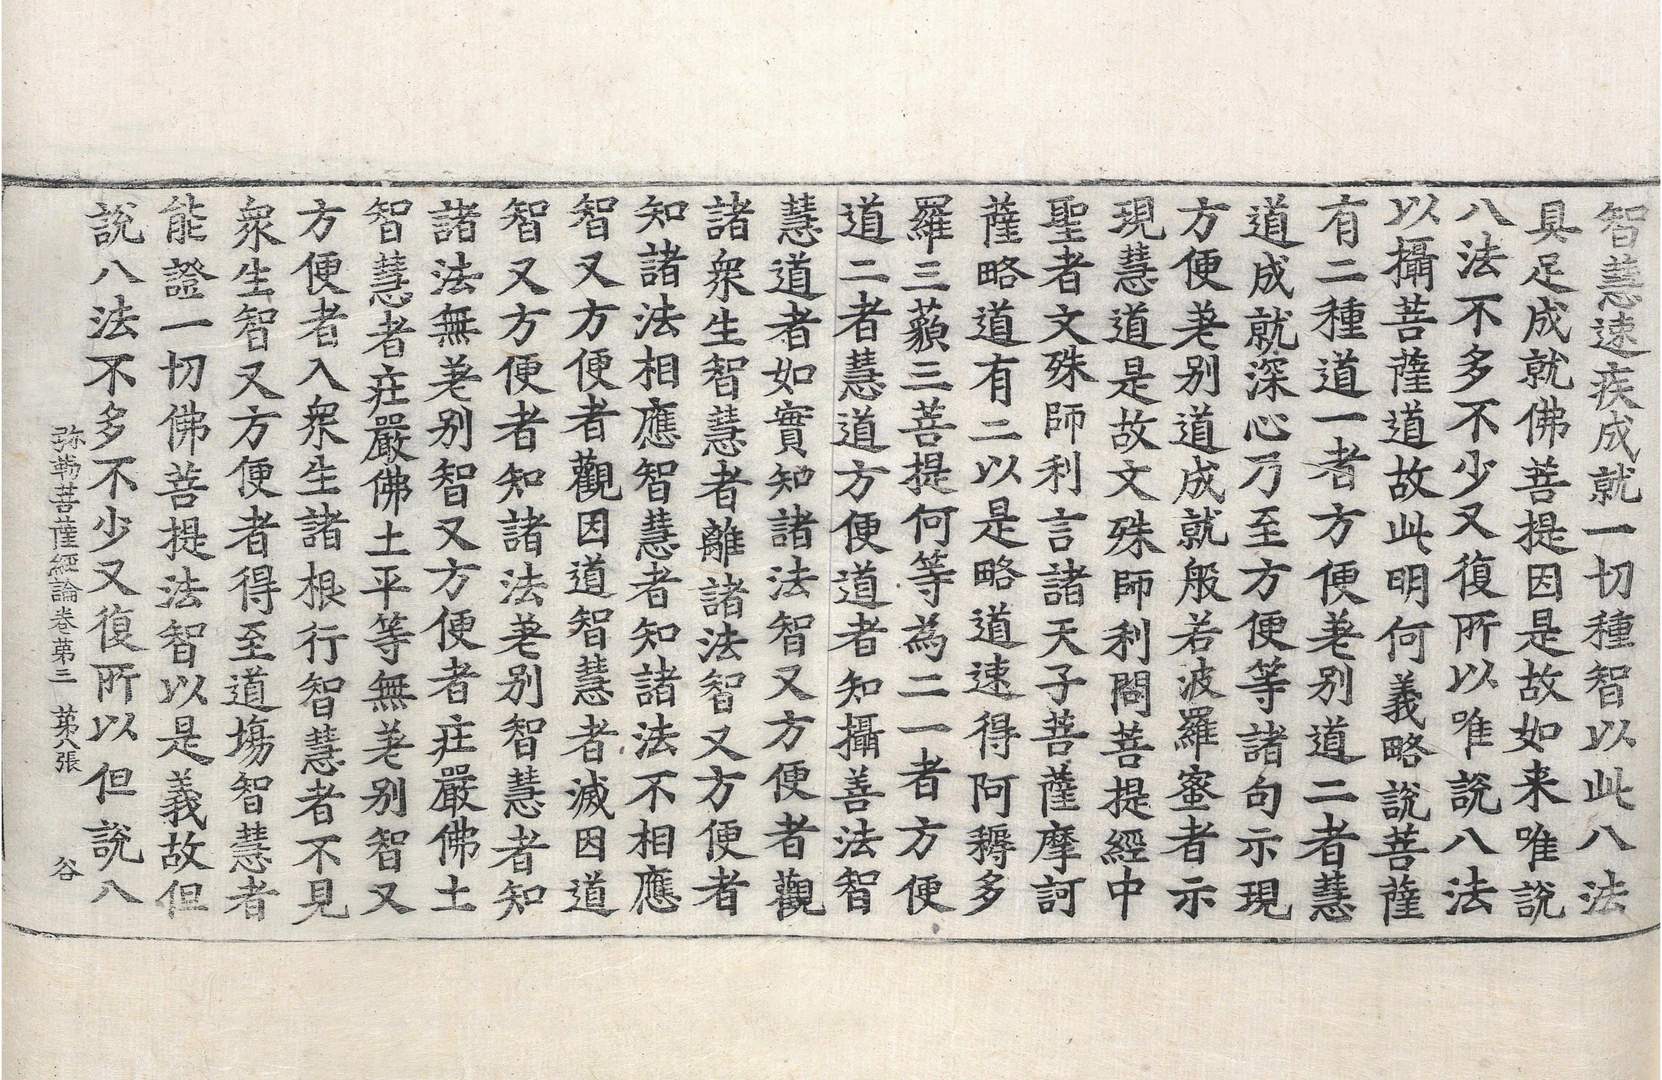 智慧速疾成就一切種智以此八法
具足成就佛菩提因是故如来唯說
八法不多不少又復所以唯說八法
以攝菩薩道故此明何義略說菩薩
有二種道一者方便差別道二者慧
道成就深心乃至方便等諸句示現
方便差別道成就般若波羅蜜者示
現慧道是故文殊師利問菩提經中
聖者文殊師利言諸天子菩薩摩訶
薩略道有二以是略道速得阿耨多
羅三藐三菩提何等為二一者方便
道二者慧道方便道者知攝善法智
慧道者如實知諸法智又方便者觀
諸衆生智慧者離諸法智又方便者
知諸法相應智慧者知諸法不相應
智又方便者觀因道智慧者滅因道
智又方便者知諸法差別智慧者知
諸法無差別智又方便者莊嚴佛土
智慧者莊嚴佛土平等無差別智又
方便者入衆生諸根行智慧者不見
衆生智又方便者得至道場智慧者
能證一切佛菩提法智以是義故但
說八法不多不少又復所以但說八
弥勒菩薩經論卷第三 第八張 谷